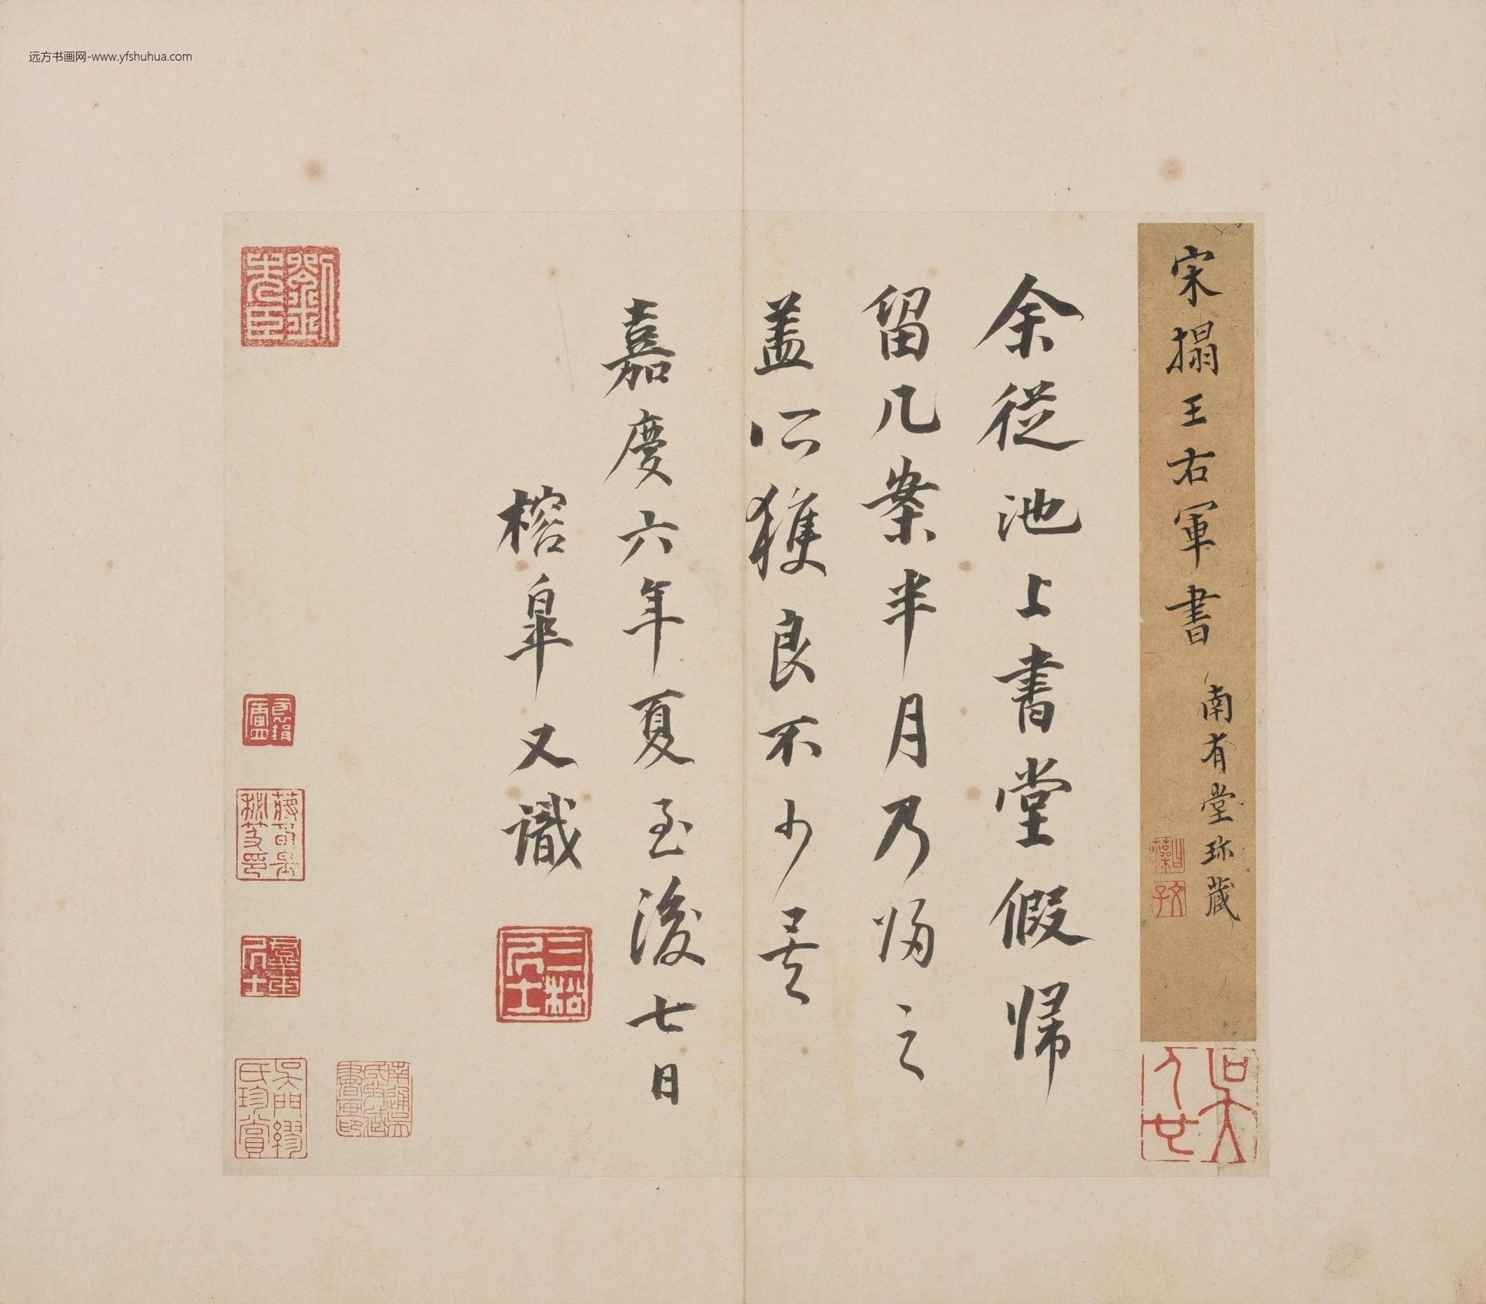 远方书画网-www.yfshuhua.com
宋搨王右軍書
南有堂珎藏
余從池上書堂假歸
留几案半月乃歸之
盖所獲良不少矣
嘉慶六年夏至後七日
榕皐又識
三松居士
吳門繆氏珍賞